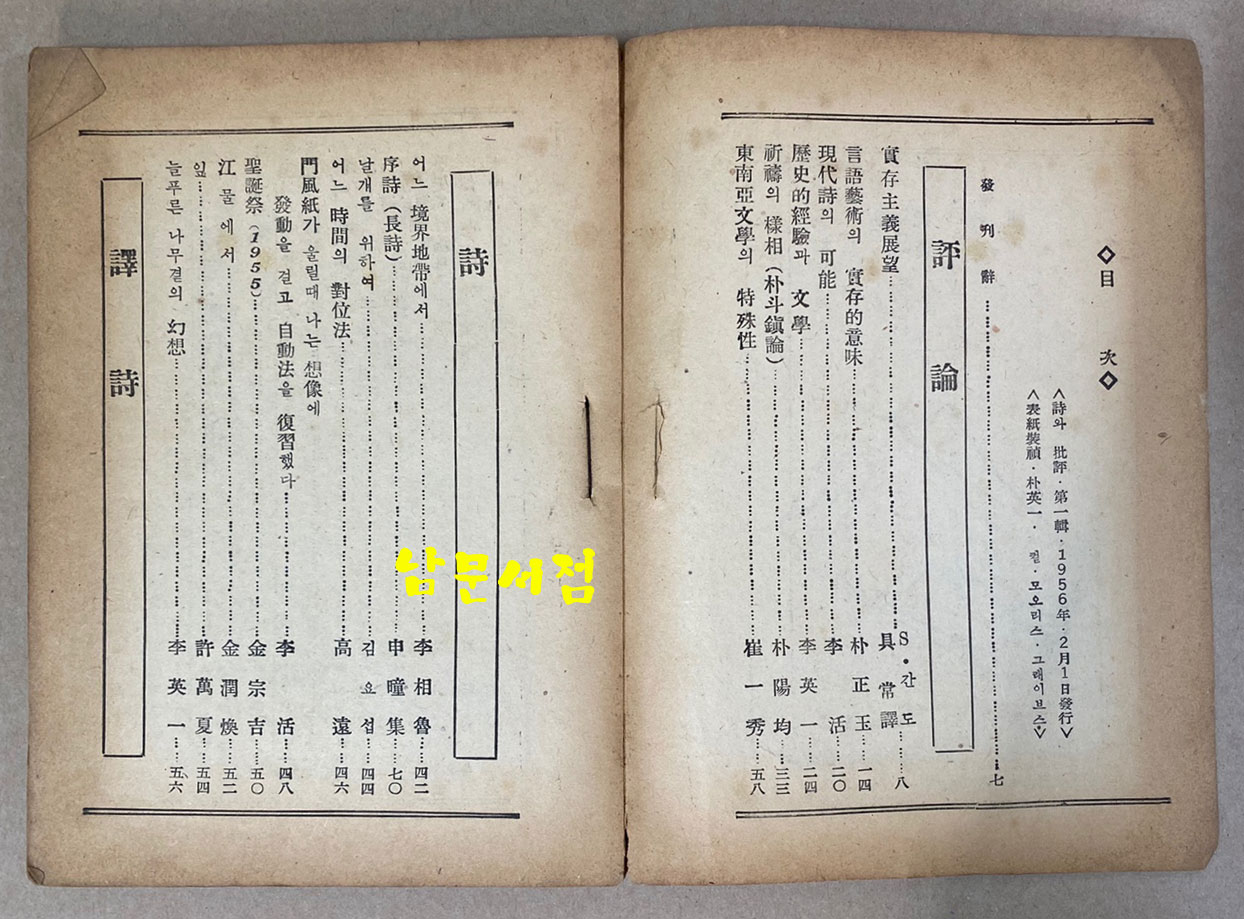 ◇目 次◇
<詩와 批評·第一輯·1956年·2月1日發行>
<表紙裝幀·朴英一· 컽·모오리스·그레이브스>
發 刊 辭……七
評 論
實存主義展望……S·간도……八
具 常 譯
言語藝術의 實存的意味……朴 正 玉……一四
現代詩의 可能……李 活……二〇
歷史的經驗과 文學……李 英 一……二四
祈禱의 樣相(朴斗鎭論)……朴 陽 均……三三
東南亞文學의 特殊性……崔 一 秀……五八
詩
어느 境界地帶에서……李 相 魯……四二
序詩(長詩)……申 瞳 集……七〇
날개를 위하여……김 요 섭……四四
어느 時間의 對位法……高 遠……四六
門風紙가 울릴때 나는 想像에
發動을 걸고 自動法을 復習했다……李 活……四八
聖誕祭(1955)……金 宗 吉……五〇
江물에서……金 潤 煥……五二
잎……許 萬 夏……五四
늘푸른 나무결의 幻想……李 英 一……五六
譯 詩
남문서점